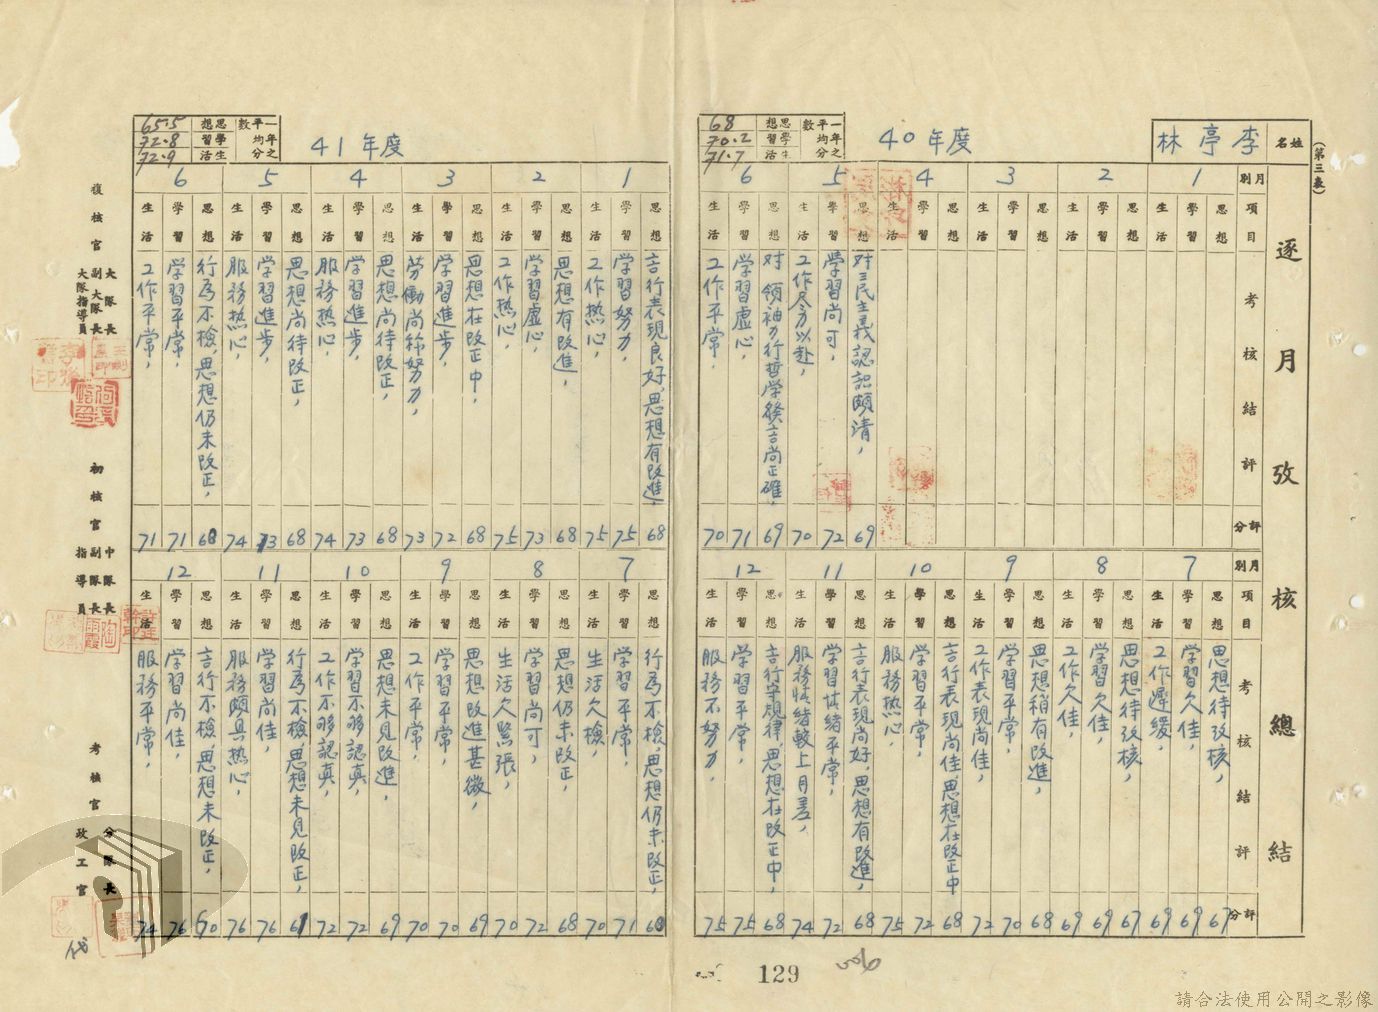 (第三表)
逐月攷核總結
姓名 李亭林
40年度
一年之平均分數
思想 68
學習 70.2
生活 71.7
月別 1 2 3 4 5 6
項目 思想 學習 生活
考核結評
5
思想 對三民主義認識頗清,
學習 學習尚可,
生活 工作尽力以赴,
6
思想 对領袖力行哲学發言尚正確,
學習 学習虛心,
生活 工作平常,
評分
69 72 70
69 71 70
月別 7 8 9 10 11 12
項目 思想 學習 生活
考核結評
7
思想 思想待攷核,
學習 学習欠佳,
生活 工作遲緩,
8
思想 思想待攷核,
學習 学習欠佳,
生活 工作欠佳,
9
思想 思想稍有改進,
學習 学習平常,
生活 工作表現尚佳,
10
思想 言行表現尚佳,思想在改正中
學習 学習平常,
生活 服務热心,
11
思想 言行表現尚好,思想有改進,
學習 学習情緒平常,
生活 服務情緒較上月差,
12
思想 言行守規律,思想在改正中,
學習 学習平常,
生活 服務不努力,
評分
67 69 69
67 69 69
68 70 72
68 72 75
68 72 74
68 75 75
41年度
一年之平均分數
思想 65.5
學習 72.8
生活 72.9
1
思想 言行表現良好,思想有改進,
學習 学習努力,
生活 工作热心,
2
思想 思想有改進,
學習 学習虛心,
生活 工作热心,
3
思想 思想在改正中,
學習 学習進步,
生活 劳働尚称努力,
4
思想 思想尚待改正,
學習 学習進步,
生活 服務热心,
5
思想 思想尚待改正,
學習 学習進步,
生活 服務热心,
6
思想 行為不檢,思想仍未改正,
學習 学習平常,
生活 工作平常,
68 75 75
68 73 75
68 72 73
68 73 74
68 73 74
60 71 71
7
思想 行為不檢,思想仍未改正,
學習 学習平常,
生活 生活欠檢,
8
思想 思想仍未改正,
學習 学習尚可,
生活 生活欠緊張,
9
思想 思想改進甚微,
學習 学習平常,
生活 工作平常,
10
思想 思想未見改進,
學習 学習不够認真,
生活 工作不够認真,
11
思想 行為不檢,思想未見改正,
學習 学習尚佳,
生活 服務頗具热心,
12
思想 言行不檢,思想未改正,
學習 学習尚佳,
生活 服務平常,
60 71 70
68 72 70
69 70 70
69 72 72
61 76 76
60 76 74
複核官 大隊長 副大隊長 大隊指導員
初核官 中隊長 副隊長 指導員
考核官 分隊長 政工官
129
請合法使用公開之影像